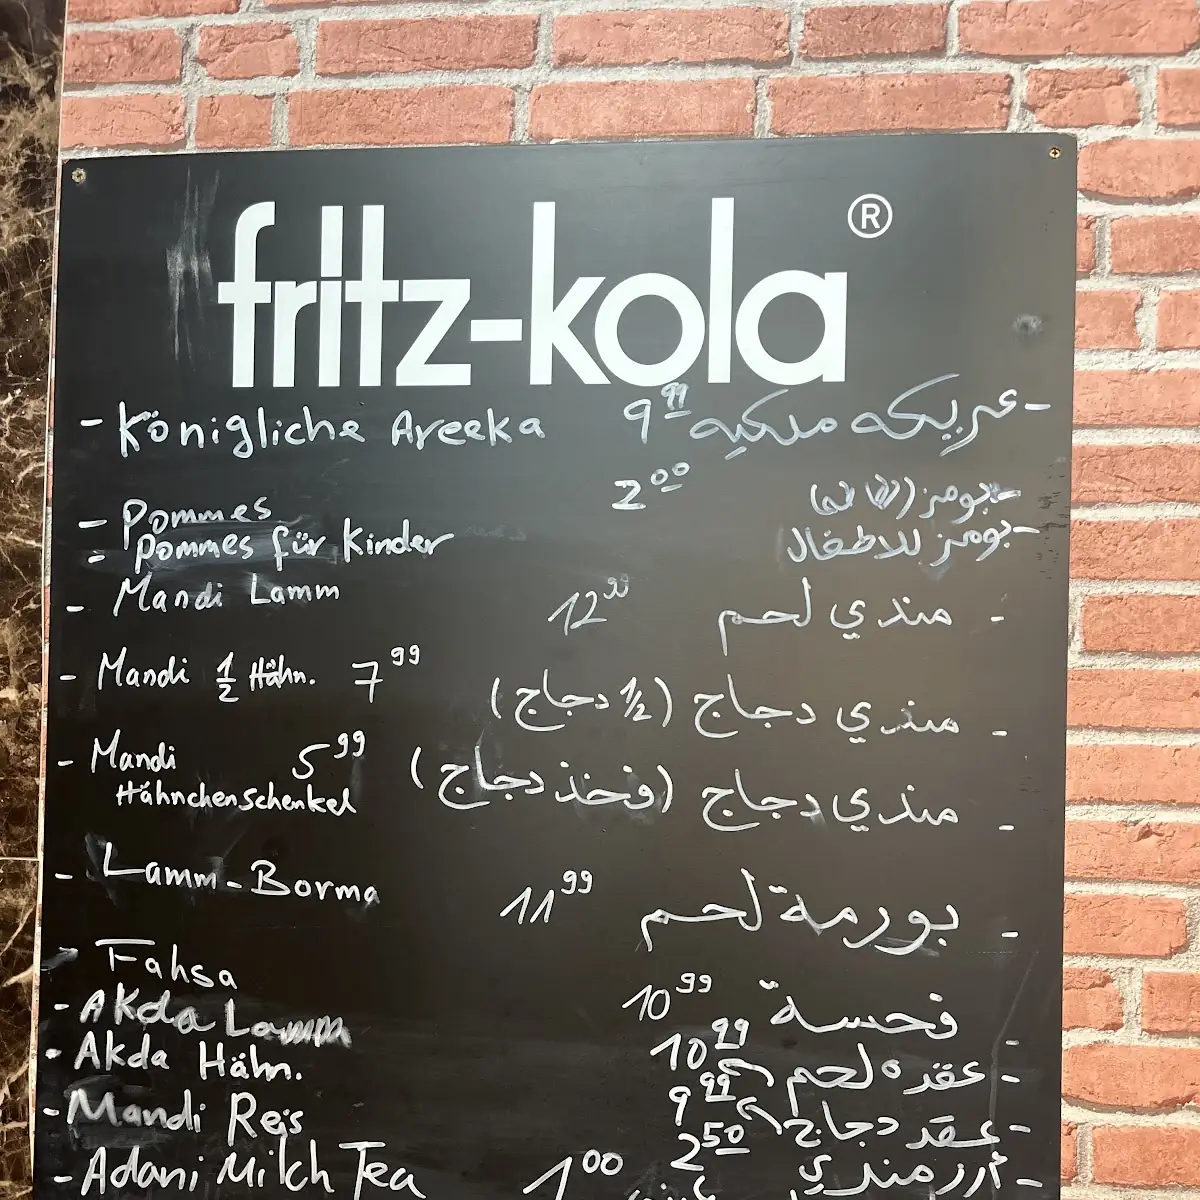 fritz-kola ®
- Königliche Areeka 9⁹⁹ عريكه ملكيه -
- Pommes 2⁰⁰ بومز (بطاطه) -
- Pommes für Kinder بومز للاطفال -
- Mandi Lamm 12⁹⁹ مندي لحم -
- Mandi ½ Hähn. 7⁹⁹ مندي دجاج (½ دجاج) -
- Mandi 5⁹⁹ مندي دجاج (فخذ دجاج) -
Hähnchenschenkel
- Lamm-Borma 11⁹⁹ بورمة لحم -
- Fahsa 10⁹⁹ فحسة -
- Akda Lamm 10⁹⁹ عقده لحم -
- Akda Hähn. 9⁹⁹ عقد دجاج -
- Mandi Reis 2⁵⁰ أرز مندي -
- Adani Milch Tea 1⁰⁰